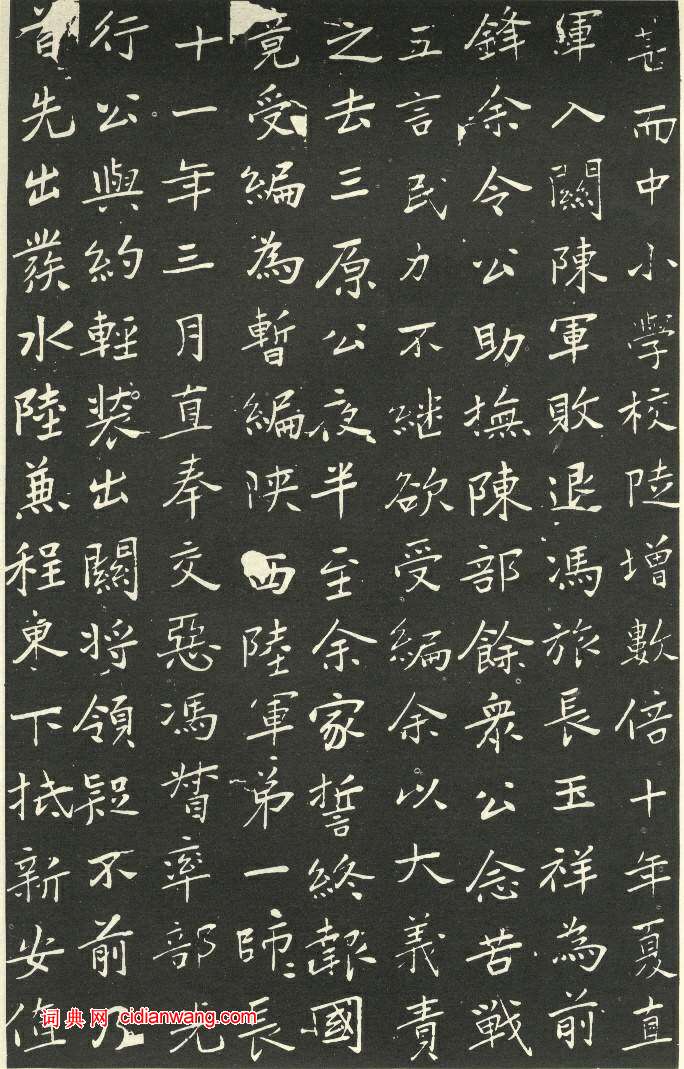 甚而中小學校陡增數倍十年夏直
軍入關陳軍敗退馮旅長玉祥為前
鋒余令公助撫陳部餘衆公念苦戰
五言民力不繼欲受編余以大義責
之去三原公夜半至余家誓終報國
竟受編為暫編陝西陸軍第一師〻長
十一年三月直奉交惡馮督率部先
行公與約輕裝出關將領疑不前乃
首先出發水陸兼程東下抵新安值
词典网 cidianwang.com